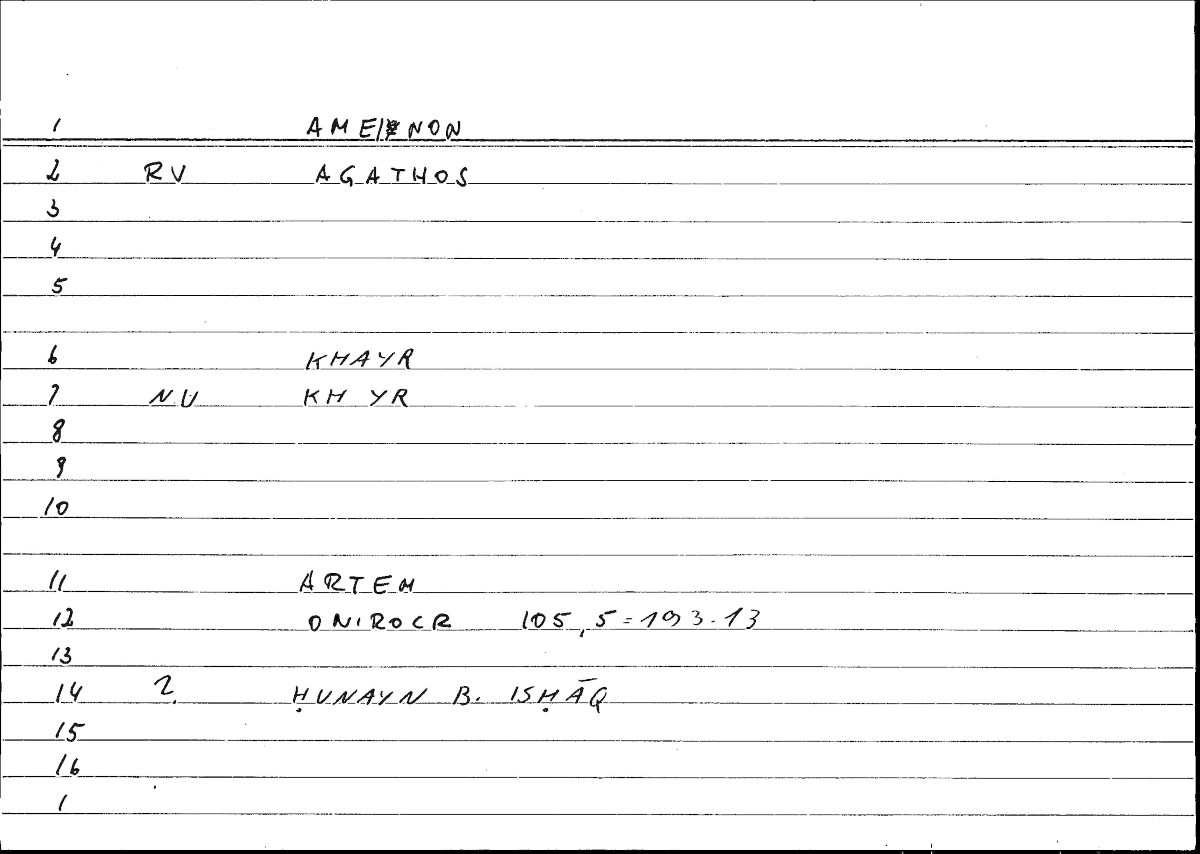 1 AMEINON
2 RV AGATHOS
3
4
5
6 KHAYR
7 NU KH YR
8
9
10
11 ARTEM
12 ONIROCR 105,5=193.13
13
14 2. ḤUNAYN B. ISḤĀQ
15
16
1